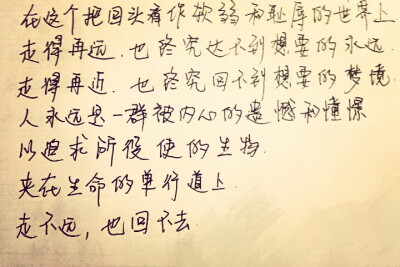 在这个把回头看作软弱和耻辱的世界上
走得再远，也终究达不到想要的永远
走得再近，也终究回不到想要的梦境
人永远是一群被内心的遗憾和憧憬
以追求所役使的生物
夹在生命的单行道上
走不远，也回不去